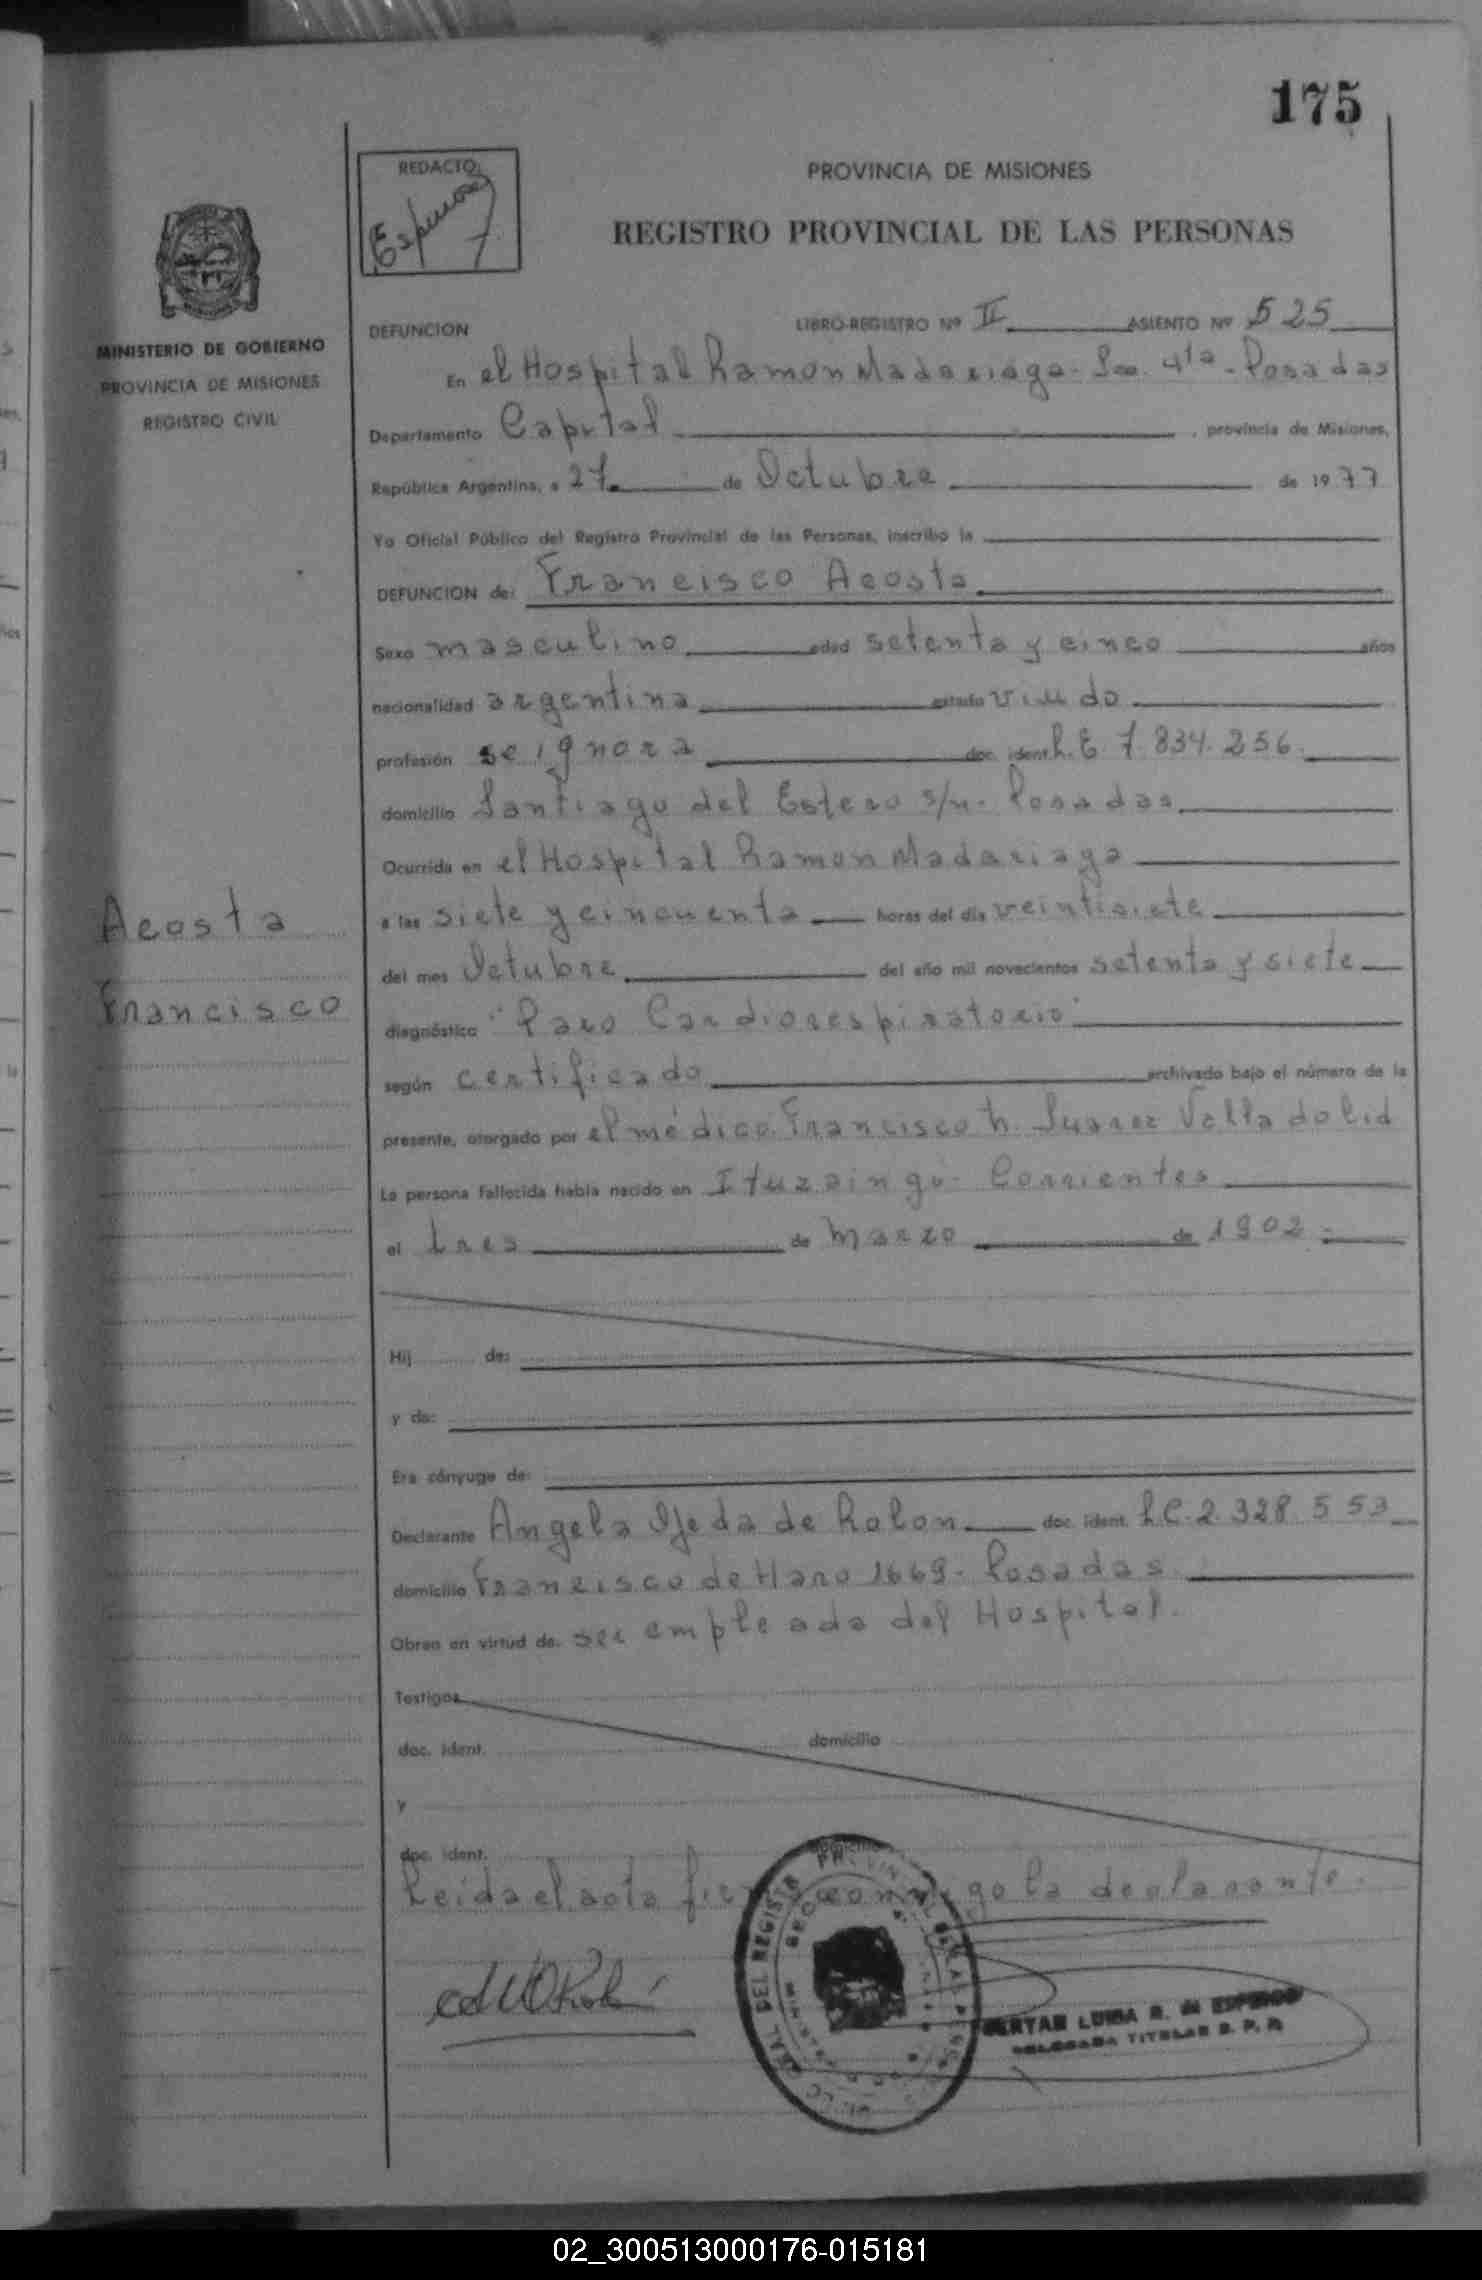 175
REDACTO:
Espinosa
PROVINCIA DE MISIONES
REGISTRO PROVINCIAL DE LAS PERSONAS
MINISTERIO DE GOBIERNO
PROVINCIA DE MISIONES
REGISTRO CIVIL
DEFUNCION LIBRO-REGISTRO Nº II ASIENTO Nº 525
En el Hospital Ramon Madariaga - Sec. 4ta - Posadas
Departamento Capital, provincia de Misiones,
República Argentina, a 27 de Octubre de 1977
Yo Oficial Público del Registro Provincial de las Personas, inscribo la
DEFUNCION de: Francisco Acosta
Sexo masculino edad setenta y cinco años
nacionalidad argentina estado viudo
profesión se ignora doc. ident. L.E. 7.834.256.
domicilio Santiago del Estero s/n - Posadas
Ocurrida en el Hospital Ramon Madariaga
a las siete y cincuenta horas del día veintisiete
del mes Octubre del año mil novecientos setenta y siete
diagnóstico "Paro Cardiorespiratorio"
según certificado archivado bajo el número de la
presente, otorgado por el médico Francisco h. Suarez Valladolid
La persona fallecida había nacido en Ituzaingó - Corrientes
el tres de marzo de 1902.-
Acosta
Francisco
Hij de:
y de:
Era cónyuge de:
Declarante Angela Ojeda de Rolon doc. ident. L.C. 2.328.553
domicilio Francisco de Haro 1669 - Posadas.
Obran en virtud de. ser empleada del Hospital.
Testigos
doc. ident. domicilio
y
doc. ident.
Leida el acta conmigo la declarante.
LUISA R. de ESPINOSA
DELEGADA TITULAR R. P. P.
02_300513000176-015181